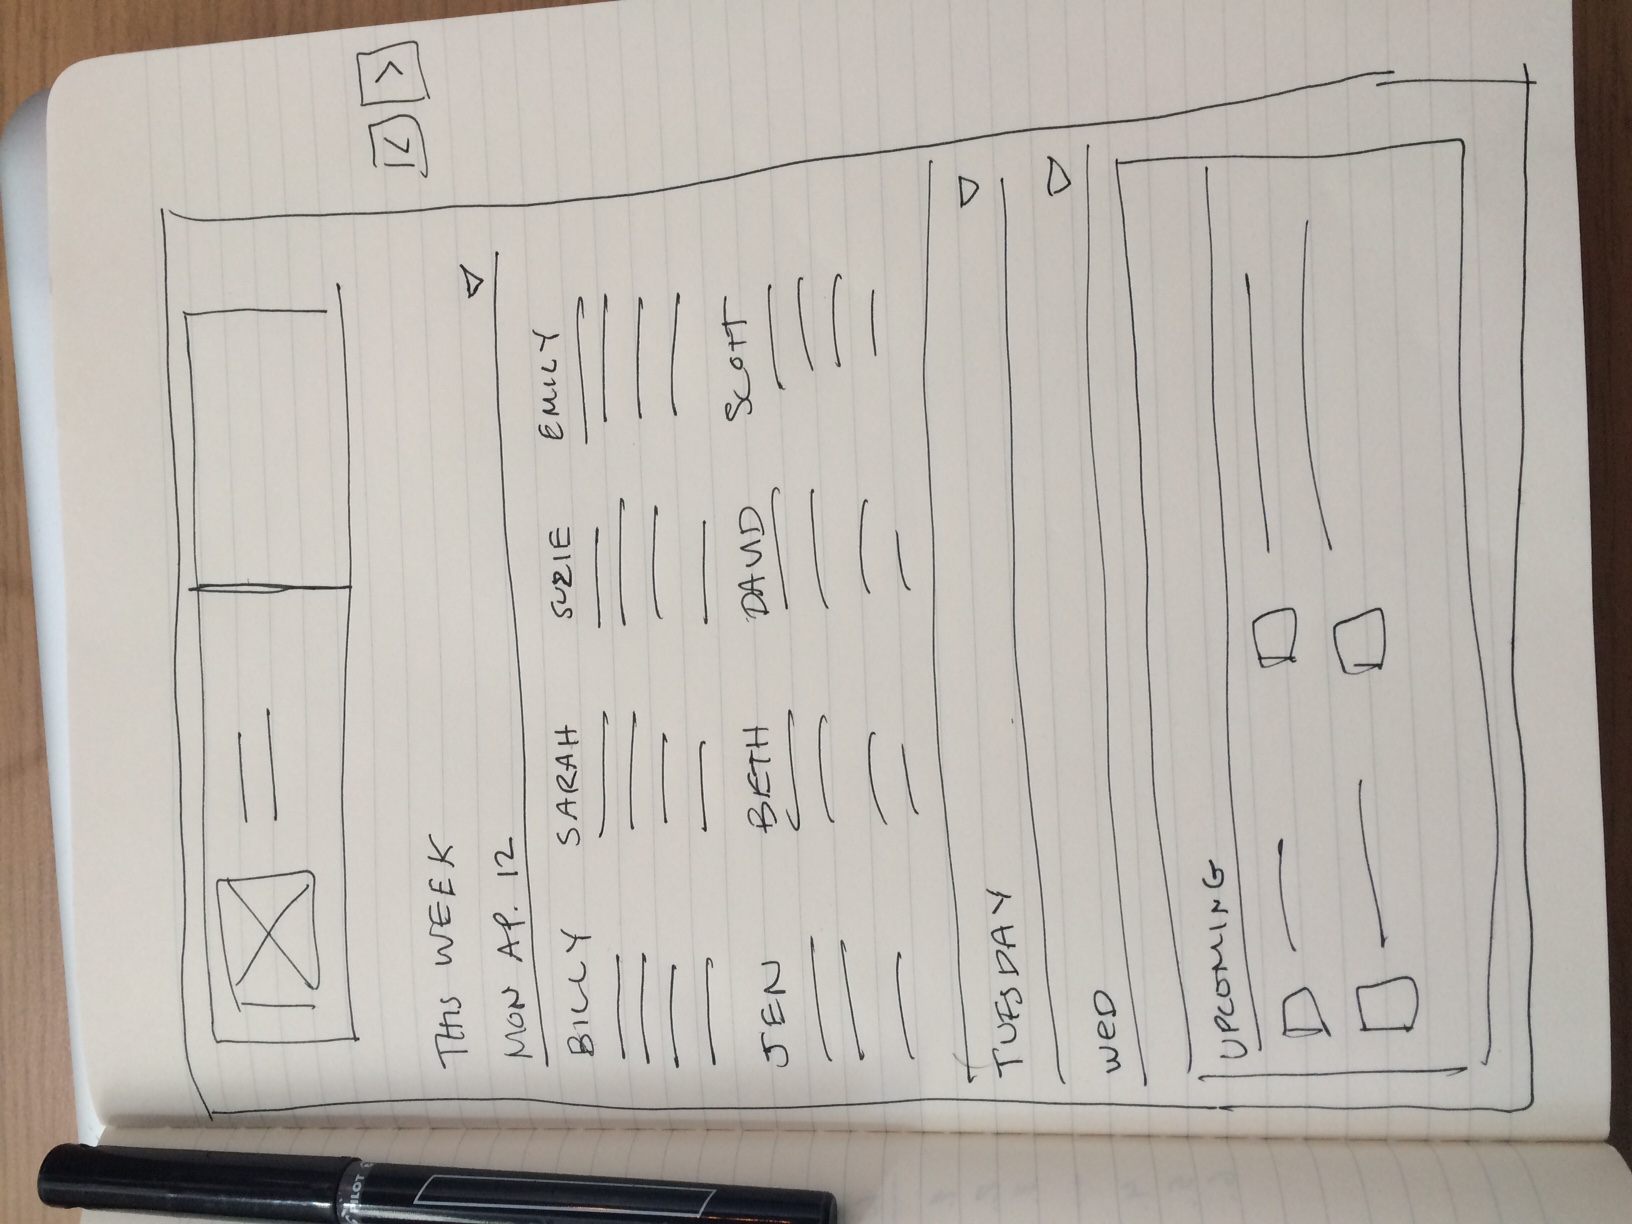 PILOT
< >
THIS WEEK
MON AP. 12
BILLY SARAH SUZIE EMILY
JEN BETH DAVID SCOTT
TUESDAY
WED
UPCOMING